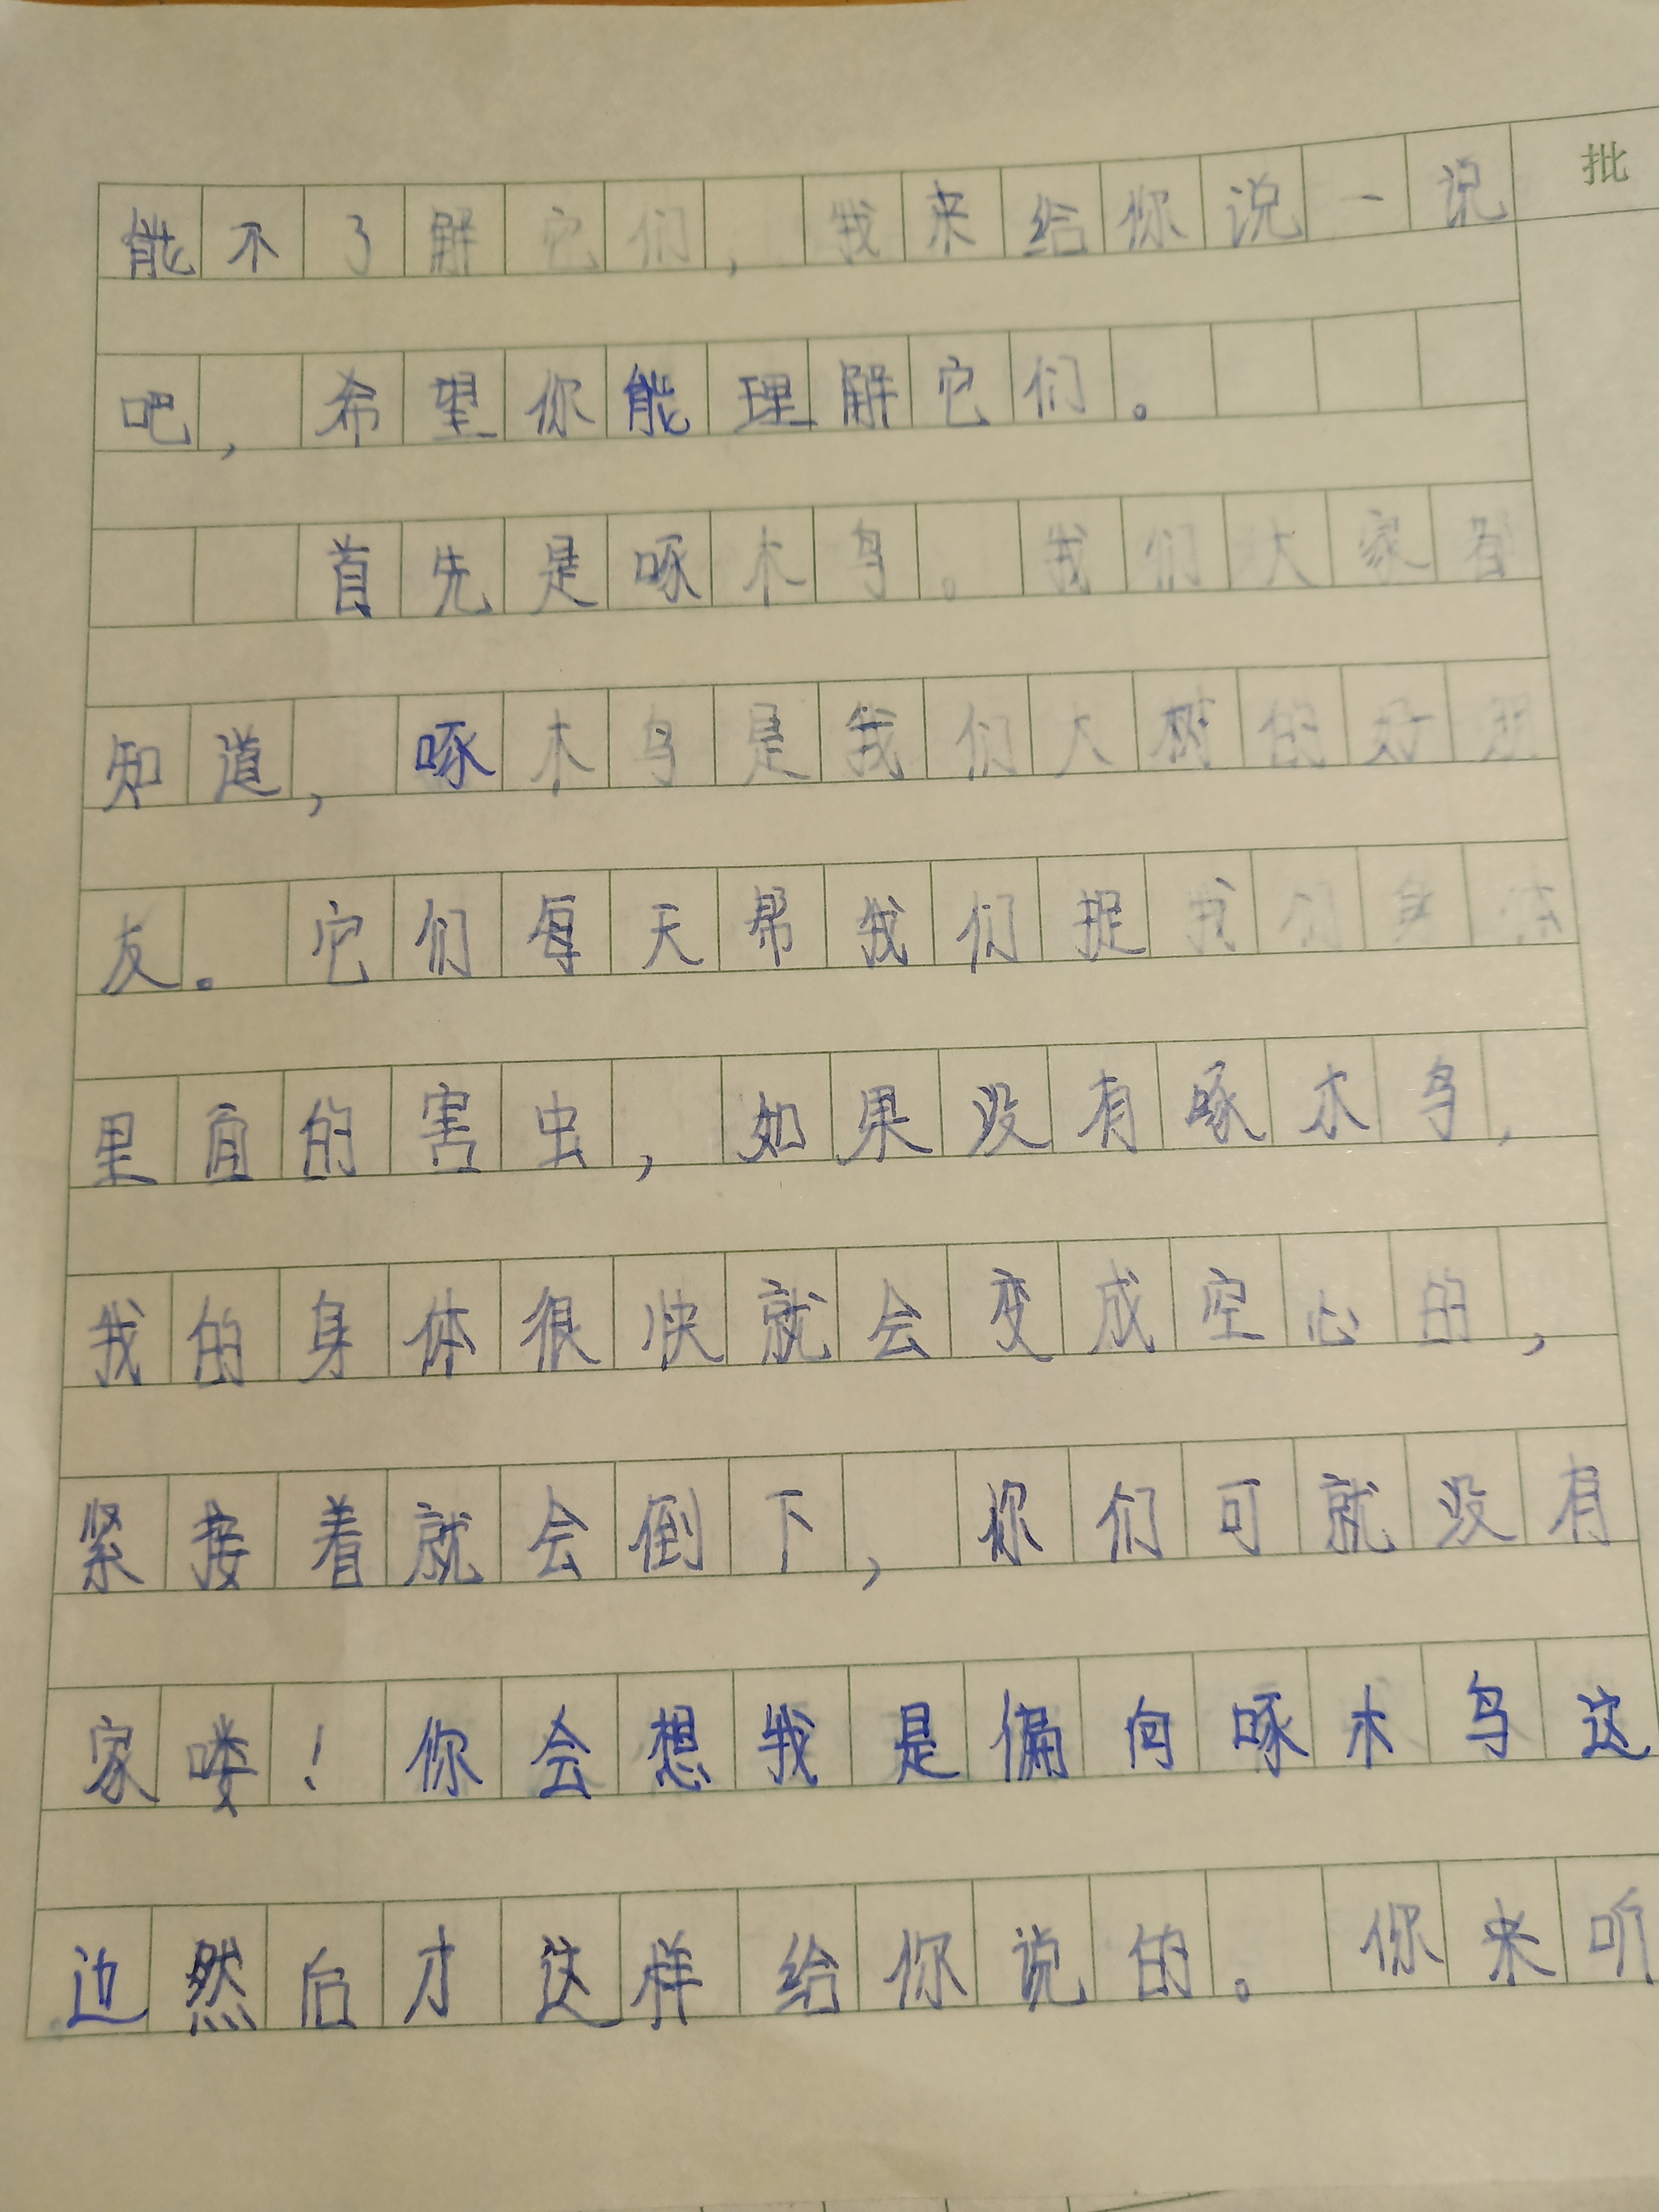 批
能不了解它们，我来给你说一说
吧，希望你能理解它们。
首先是啄木鸟。我们大家都
知道，啄木鸟是我们大树的好朋
友。它们每天帮我们捉我们身体
里面的害虫，如果没有啄木鸟，
我的身体很快就会变成空心的，
紧接着就会倒下，你们可就没有
家喽！你会想我是偏向啄木鸟这
边然后才这样给你说的。你来听